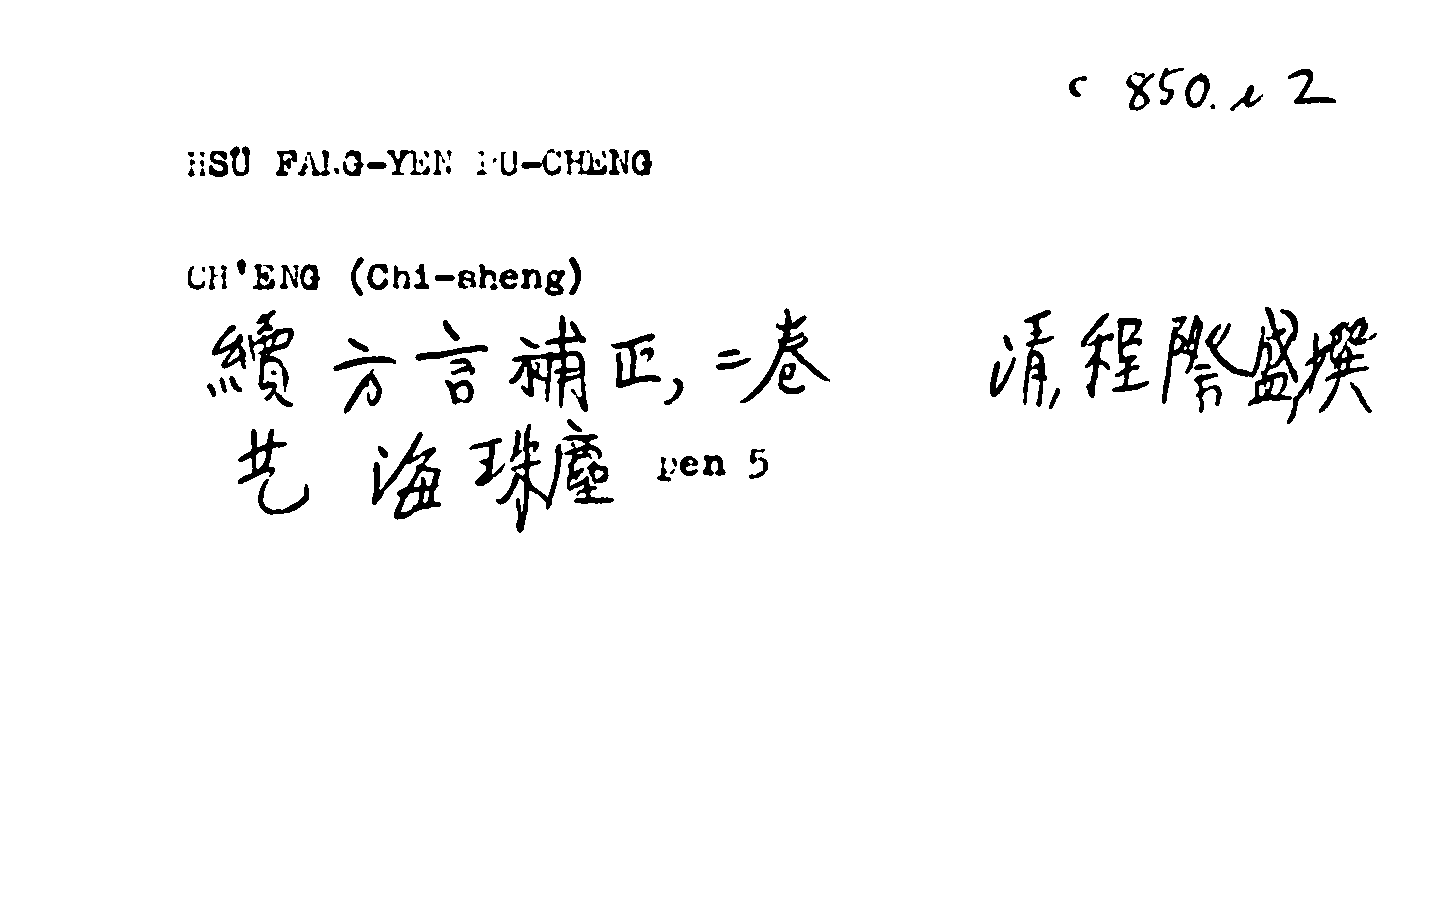 c 850. i 2
HSÜ FANG-YEN PU-CHENG
CH'ENG (Chi-sheng)
續方言補正, 二卷 清, 程際盛, 撰
艺海珠塵 pen 5